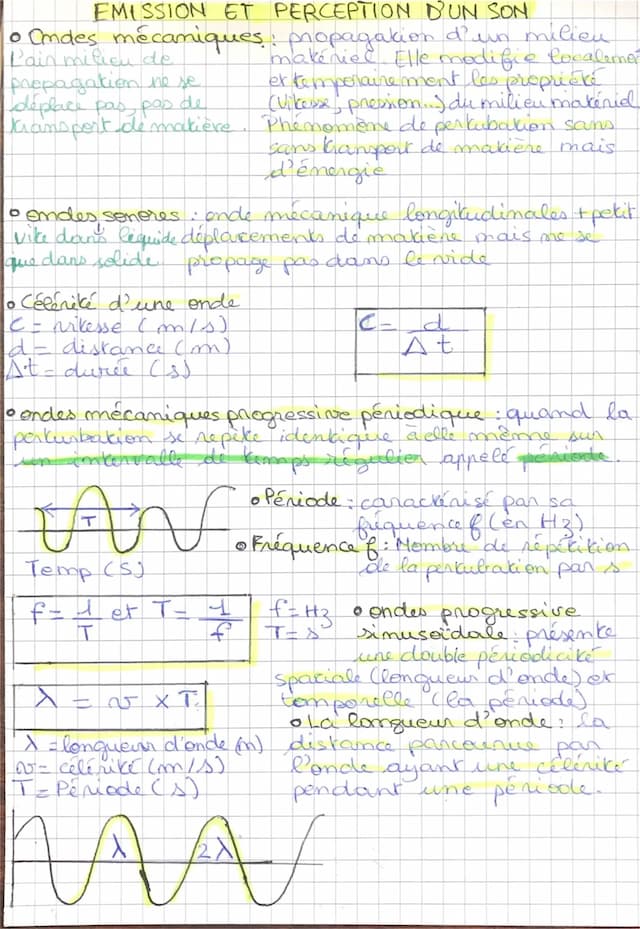 EMISSION ET PERCEPTION D'UN SON
• Ondes mécaniques : propagation d'un milieu
L'air milieu de
propagation ne se
déplace pas, pas de
transport de matière.
matériel. Elle modifie localement
et temporairement les propriété
(vitesse, pression...) du milieu matériel
Phénomène de pertubation sans
sans transport de matière mais
d'énergie
• ondes sonores : onde mécanique longitudinales + petit
vite dans liquide
que dans solide
déplacements de matière mais ne se
propage pas dans le vide
• Célérité d'une onde
C = vitesse (m/s)
d = distance (m)
Δt = durée (s)
C = d / Δt
• ondes mécaniques progressive périodique : quand la
perturbation se repète identique à elle même sur
un intervalle de temps régulier appelé période.
T
Temp (S)
• Période : caractérisé par sa
fréquence f (en Hz)
• Fréquence f : Nombre de répétition
de la pertubation par s
f = 1/T et T = 1/f
f = Hz
T = s
λ = v × T
λ = longueur d'onde (m)
v = célérité (m/s)
T = Période (s)
• ondes progressive
sinusoïdale : présente
une double périodicité
spatiale (longueur d'onde) et
temporelle (la période)
• La longueur d'onde : la
distance parcourue par
l'onde ayant une célérité
pendant une période.
λ 2λ